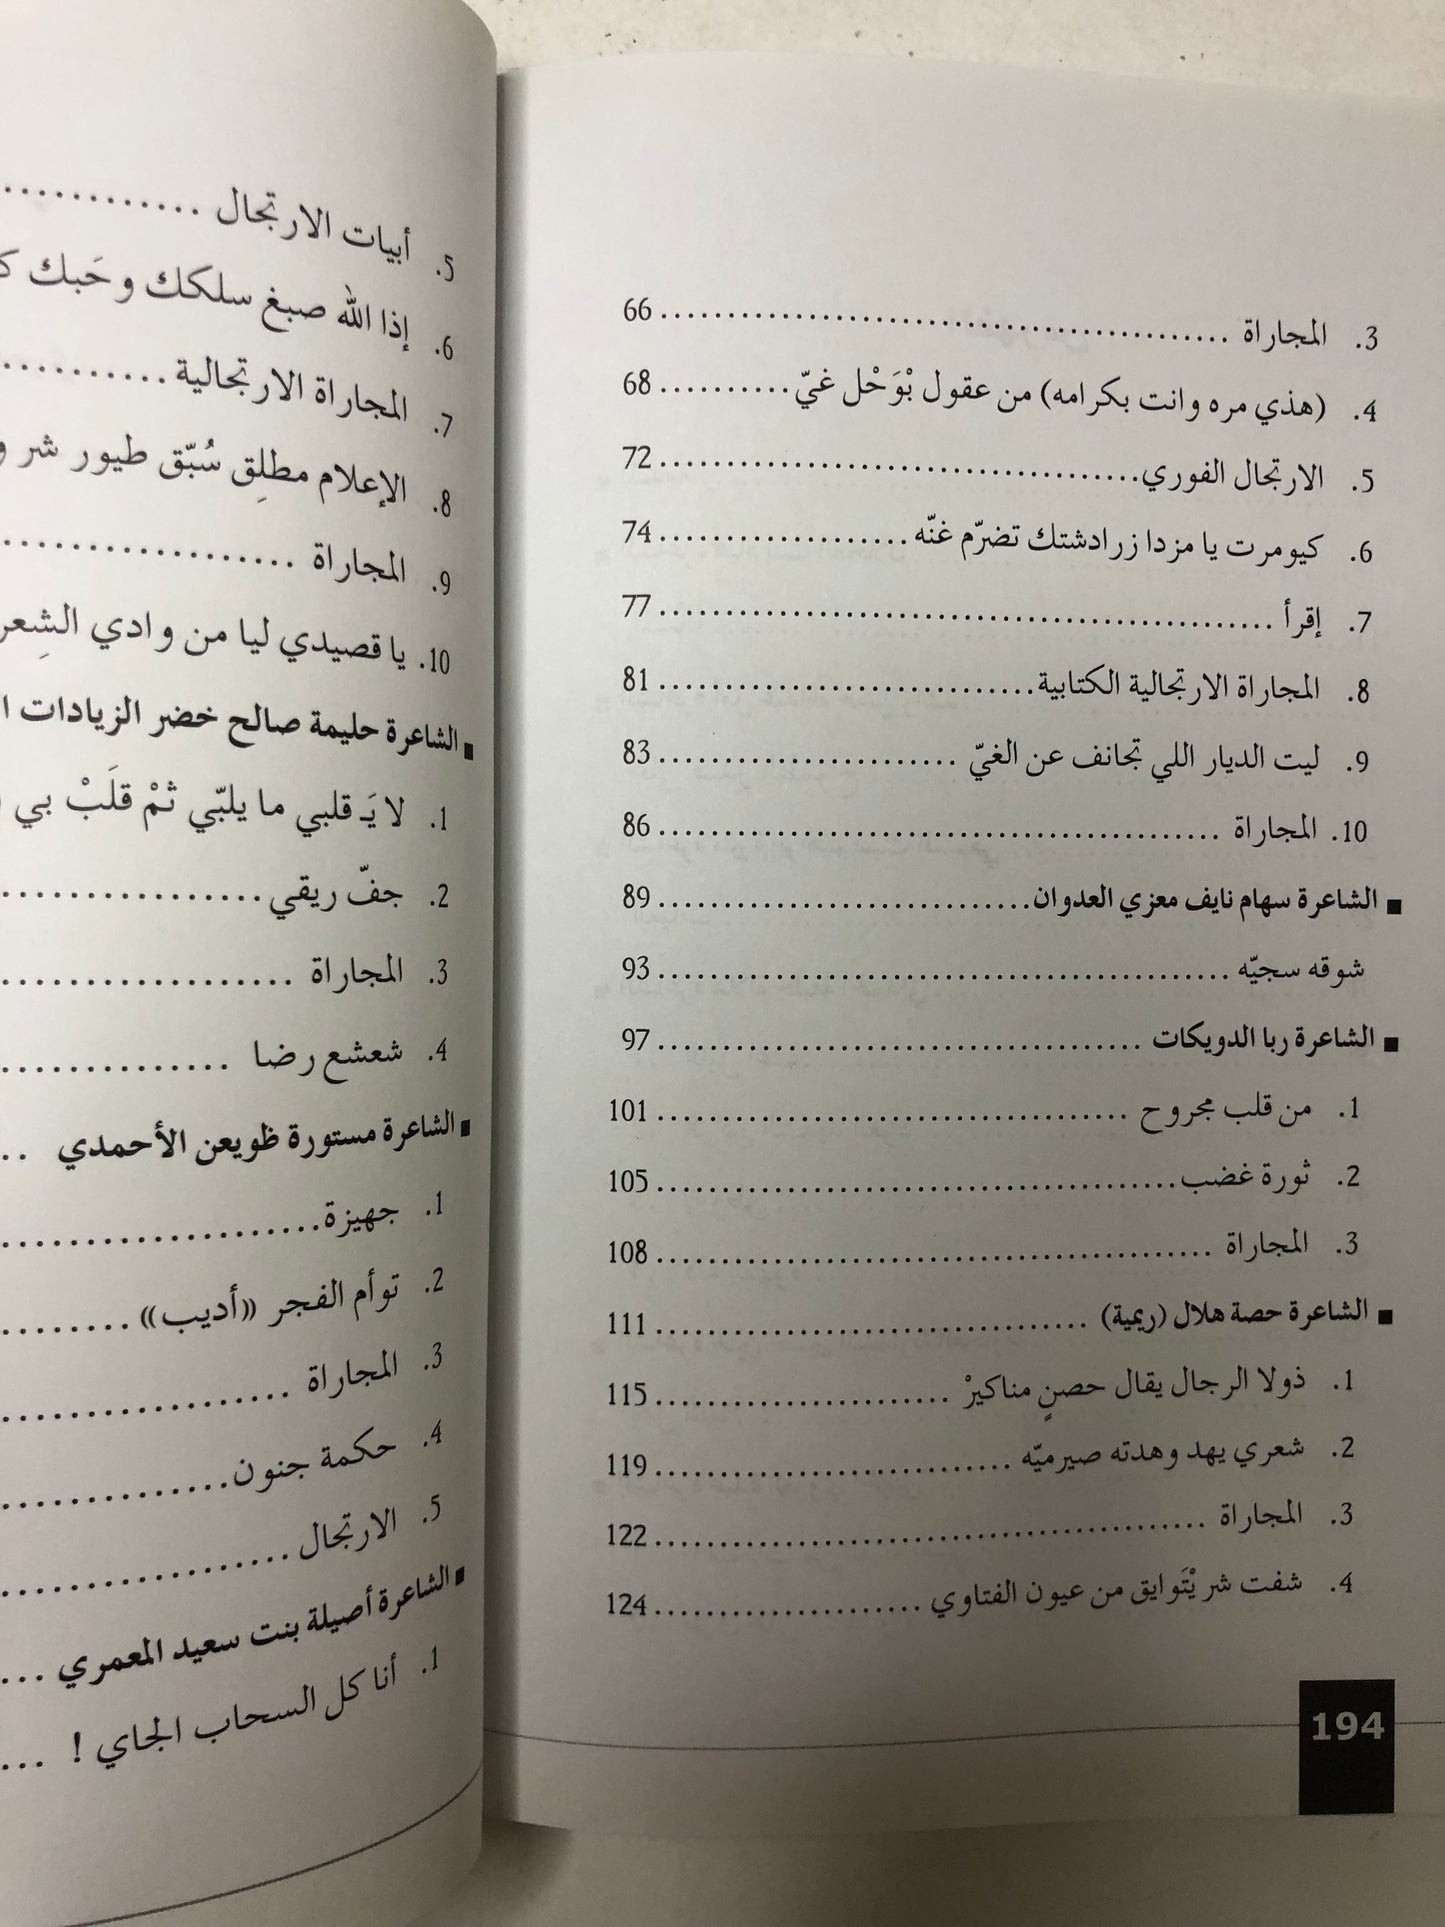 3. المجاراة ........................................... 66
4. (هذي مره وانت بكرامه) من عقول بْوَحْل غيّ .......... 68
5. الارتجال الفوري ..................................... 72
6. كيومرت يا مزدا زرادشتك تضرّم غنّه ................... 74
7. إقرأ ............................................... 77
8. المجاراة الارتجالية الكتابية ............................. 81
9. ليت الديار اللي تجانف عن الغيّ ....................... 83
10. المجاراة ........................................... 86
■ الشاعرة سهام نايف معزي العدوان ............................. 89
شوقه سجيّه ............................................ 93
■ الشاعرة ربا الدويكات ..................................... 97
1. من قلب مجروح .................................... 101
2. ثورة غضب ........................................ 105
3. المجاراة ........................................... 108
■ الشاعرة حصة هلال (ريمية) ................................. 111
1. ذولا الرجال يقال حصنٍ مناكيرْ ....................... 115
2. شعري يهد وهدته صيرميّه ............................ 119
3. المجاراة ........................................... 122
4. شفت شر يْتَوايق من عيون الفتاوي ..................... 124
194
5. أبيات الارتجال ............
6. إذا الله صبغ سلكك وحَبك
7. المجاراة الارتجالية ...........
8. الإعلام مطلِق سُبّق طيور شر
9. المجاراة ..................
10. يا قصيدي ليا من وادي الشِعر
■ الشاعرة حليمة صالح خضر الزيادات
1. لا يَـ قلبي ما يلبّي ثمْ قلَبْ بي
2. جفّ ريقي .................
3. المجاراة ...................
4. شعشع رضا ...............
■ الشاعرة مستورة ظويعن الأحمدي ..
1. جهيزة .....................
2. توأم الفجر «أديب» .........
3. المجاراة ...................
4. حكمة جنون ...............
5. الارتجال ...................
■ الشاعرة أصيلة بنت سعيد المعمري ...
1. أنا كل السحاب الجاي ! ...